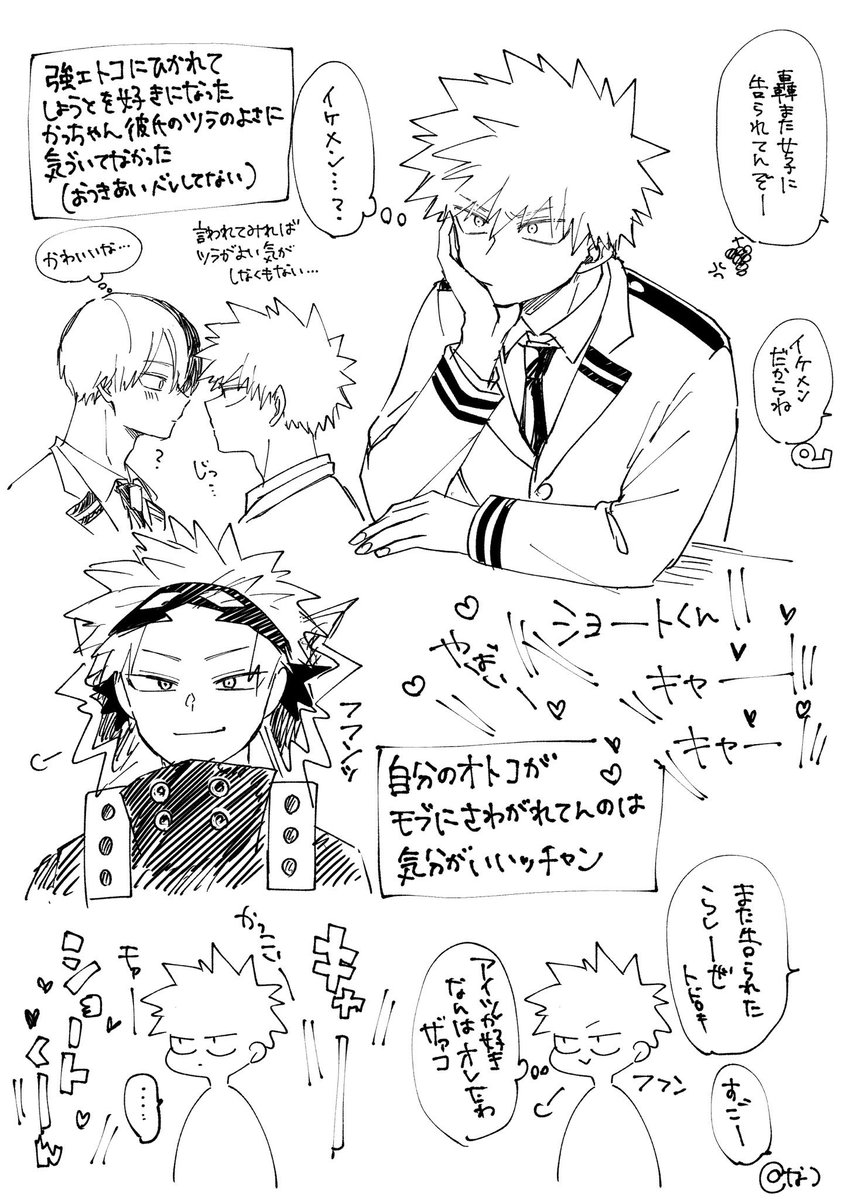 強エトコにひかれて
しょうとを好きになった
かっちゃん彼氏のツラのよさに
気づいてなかった
(おつきあいバレしてない)
轟また女子に
告られてんぞー
イケメン…?
イケメン
だからね
言われてみれば
ツラがよい気が
しなくもない…
かわいいな…
?
じっ…
ショートくん
やばい
キャー
キャー
フフンッ
自分のオトコが
モブにさわがれてんのは
気分がいいッチャン
また告られた
らしーぜ
すごー
アイツが好き
なんはオレだわ
ザァコ
フフン
キャー
かっこいー
モァー
ショートくーん
……
@なつ